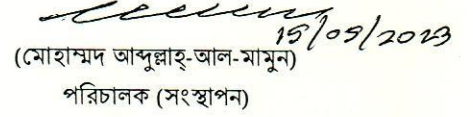 15/05/2023
(মোহাম্মদ আব্দুল্লাহ্-আল-মামুন)
পরিচালক (সংস্থাপন)